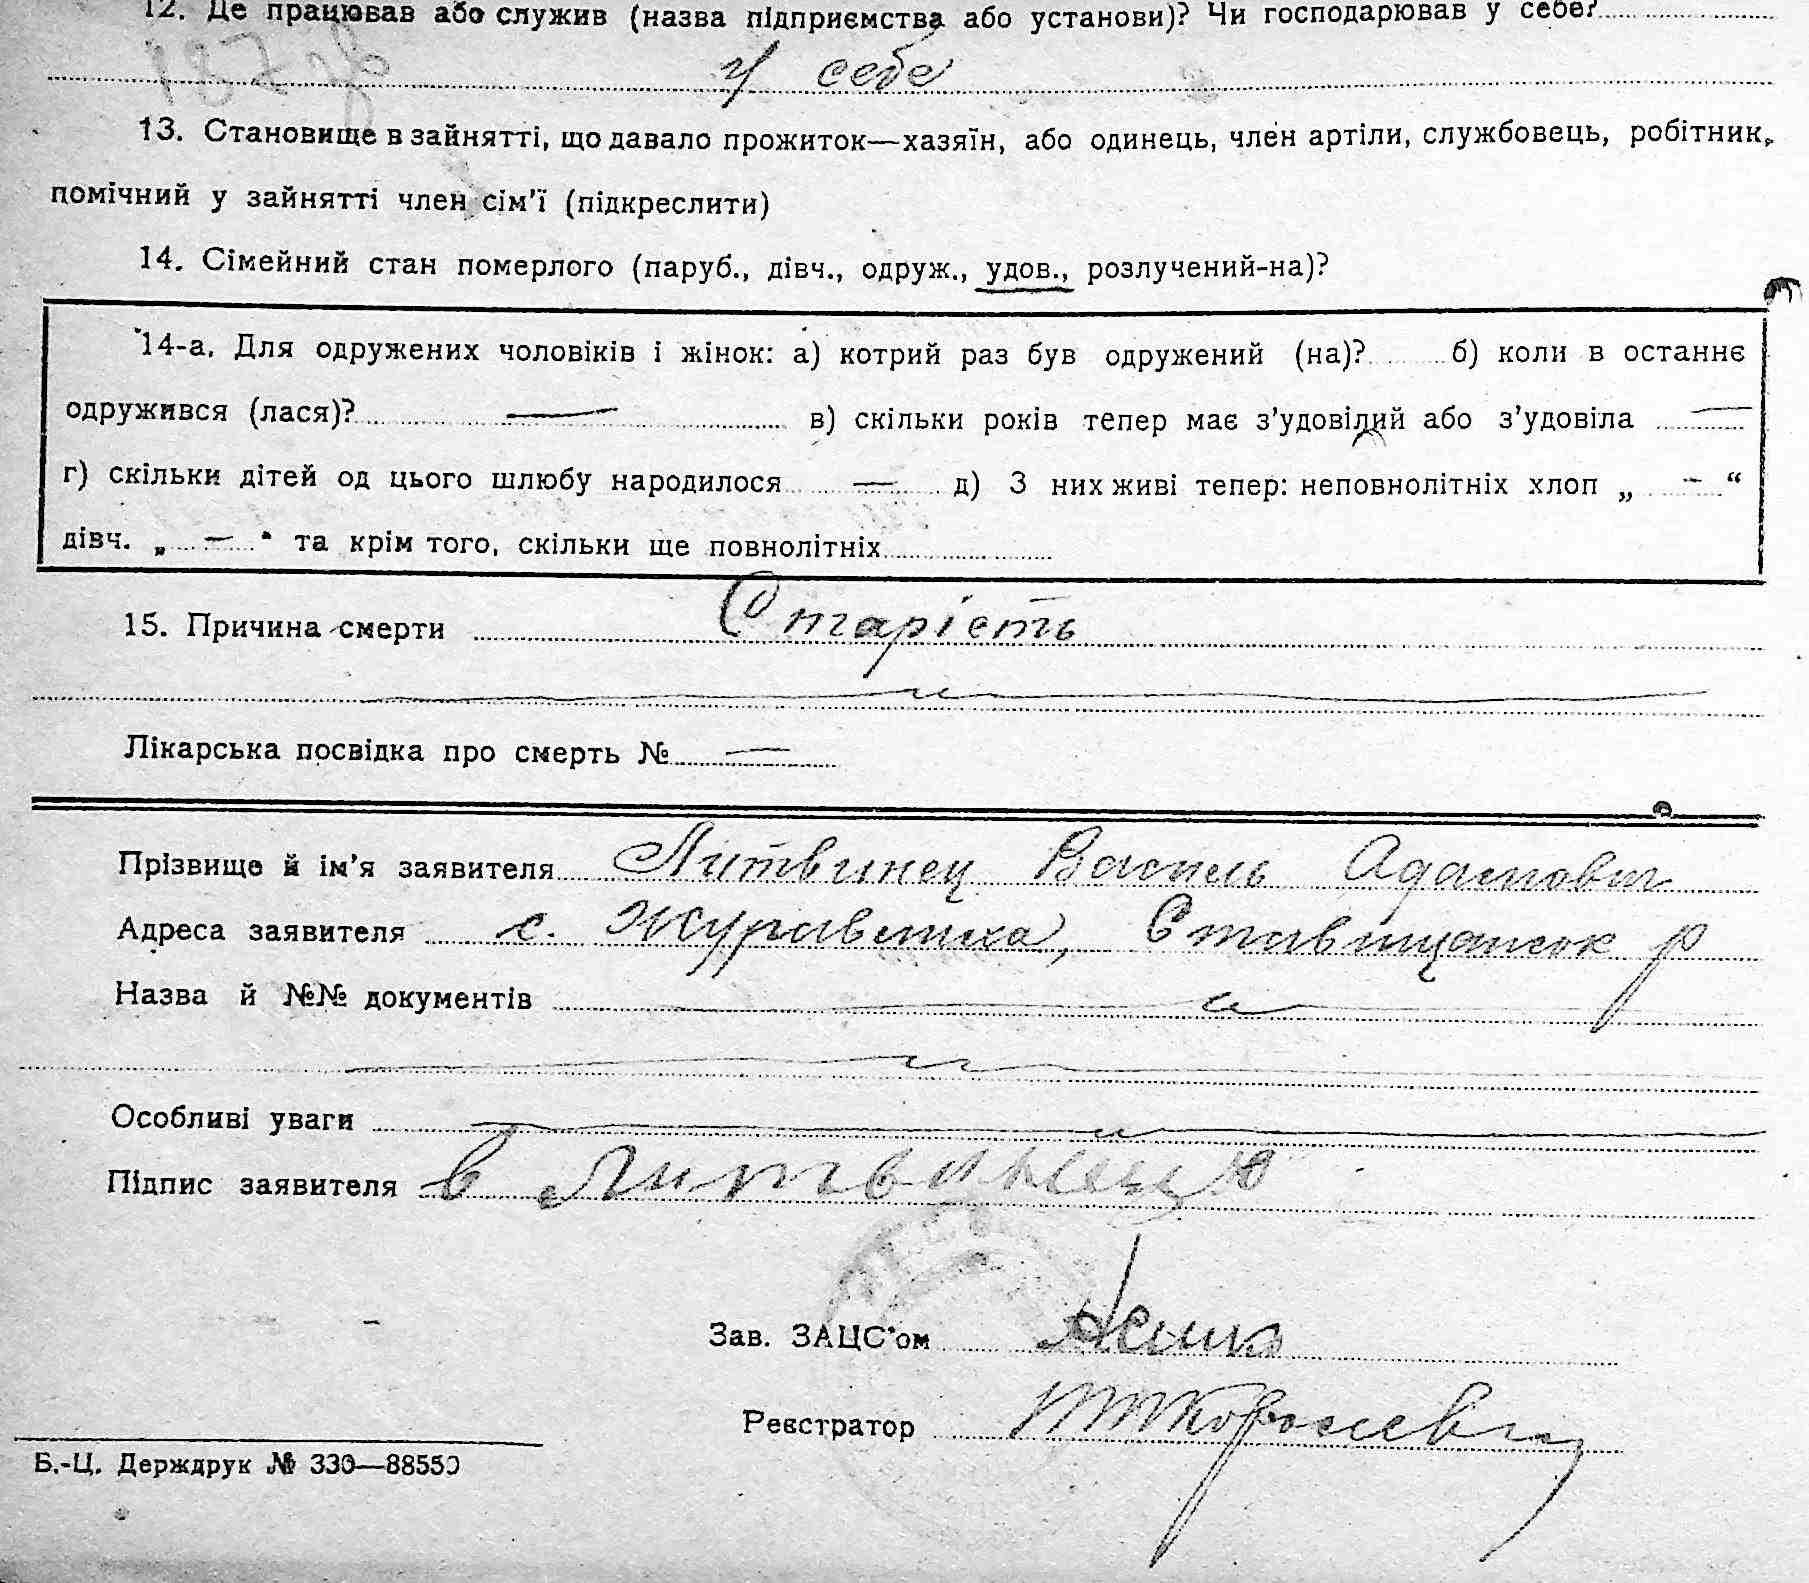 12. Де працював або служив (назва підприємства або установи)? Чи господарював у себе?
У себе
13. Становище в зайнятті, що давало прожиток—хазяїн, або одинець, член артіли, службовець, робітник,
помічний у зайнятті член сім'ї (підкреслити)
14. Сімейний стан померлого (паруб., дівч., одруж., удов., розлучений-на)?
14-а. Для одружених чоловіків і жінок: а) котрий раз був одружений (на)? б) коли в останнє
одружився (лася)? — в) скільки років тепер має з'удовілий або з'удовіла —
г) скільки дітей од цього шлюбу народилося — д) З них живі тепер: неповнолітніх хлоп „ — “
дівч. „ — “ та крім того, скільки ще повнолітніх
15. Причина смерти Старість
Лікарська посвідка про смерть № —
Прізвище й ім'я заявителя Литвинец Василь Адамович
Адреса заявителя с. Журавлиха, Ставищанськ р
Назва й №№ документів
Особливі уваги
Підпис заявителя в Литвинець
Зав. ЗАЦС'ом
Реєстратор
Б.-Ц. Держдрук № 330—88550